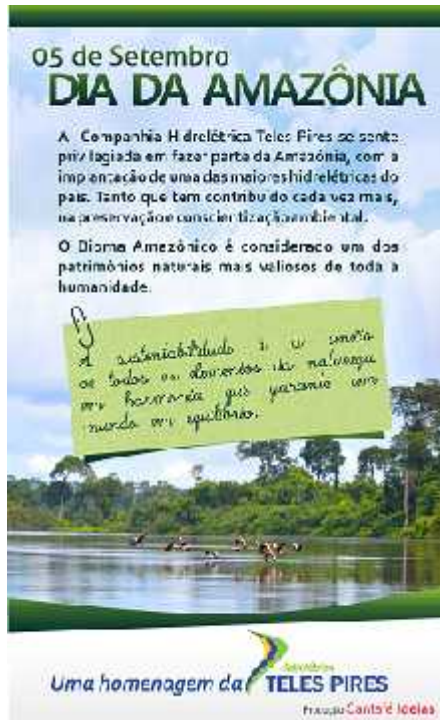 05 de Setembro
DIA DA AMAZÔNIA
A Companhia Hidrelétrica Teles Pires se sente
privilegiada em fazer parte da Amazônia, com a
implantação de uma das maiores hidrelétricas do
país. Tanto que tem contribuído cada vez mais,
na preservação e conscientização ambiental.
O Bioma Amazônico é considerado um dos
patrimônios naturais mais valiosos de toda a
humanidade.
A sustentabilidade é a
de todos os elementos da natureza
em harmonia que garante um
mundo em equilíbrio.
Uma homenagem da
TELES PIRES
Produção Canto é Ideias